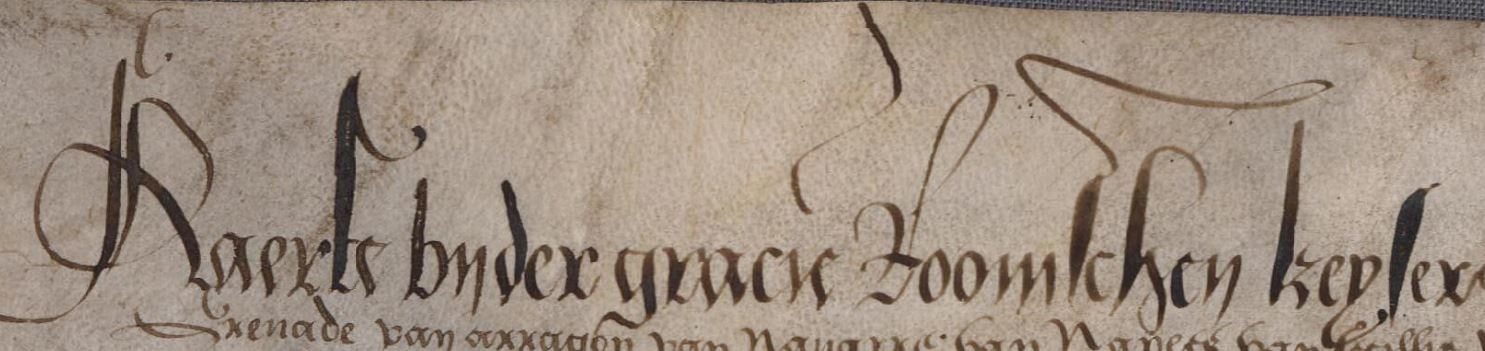 Kaerle bijder gracie Roomschen keyser
Grenade van arragon van Navarre van Napels van